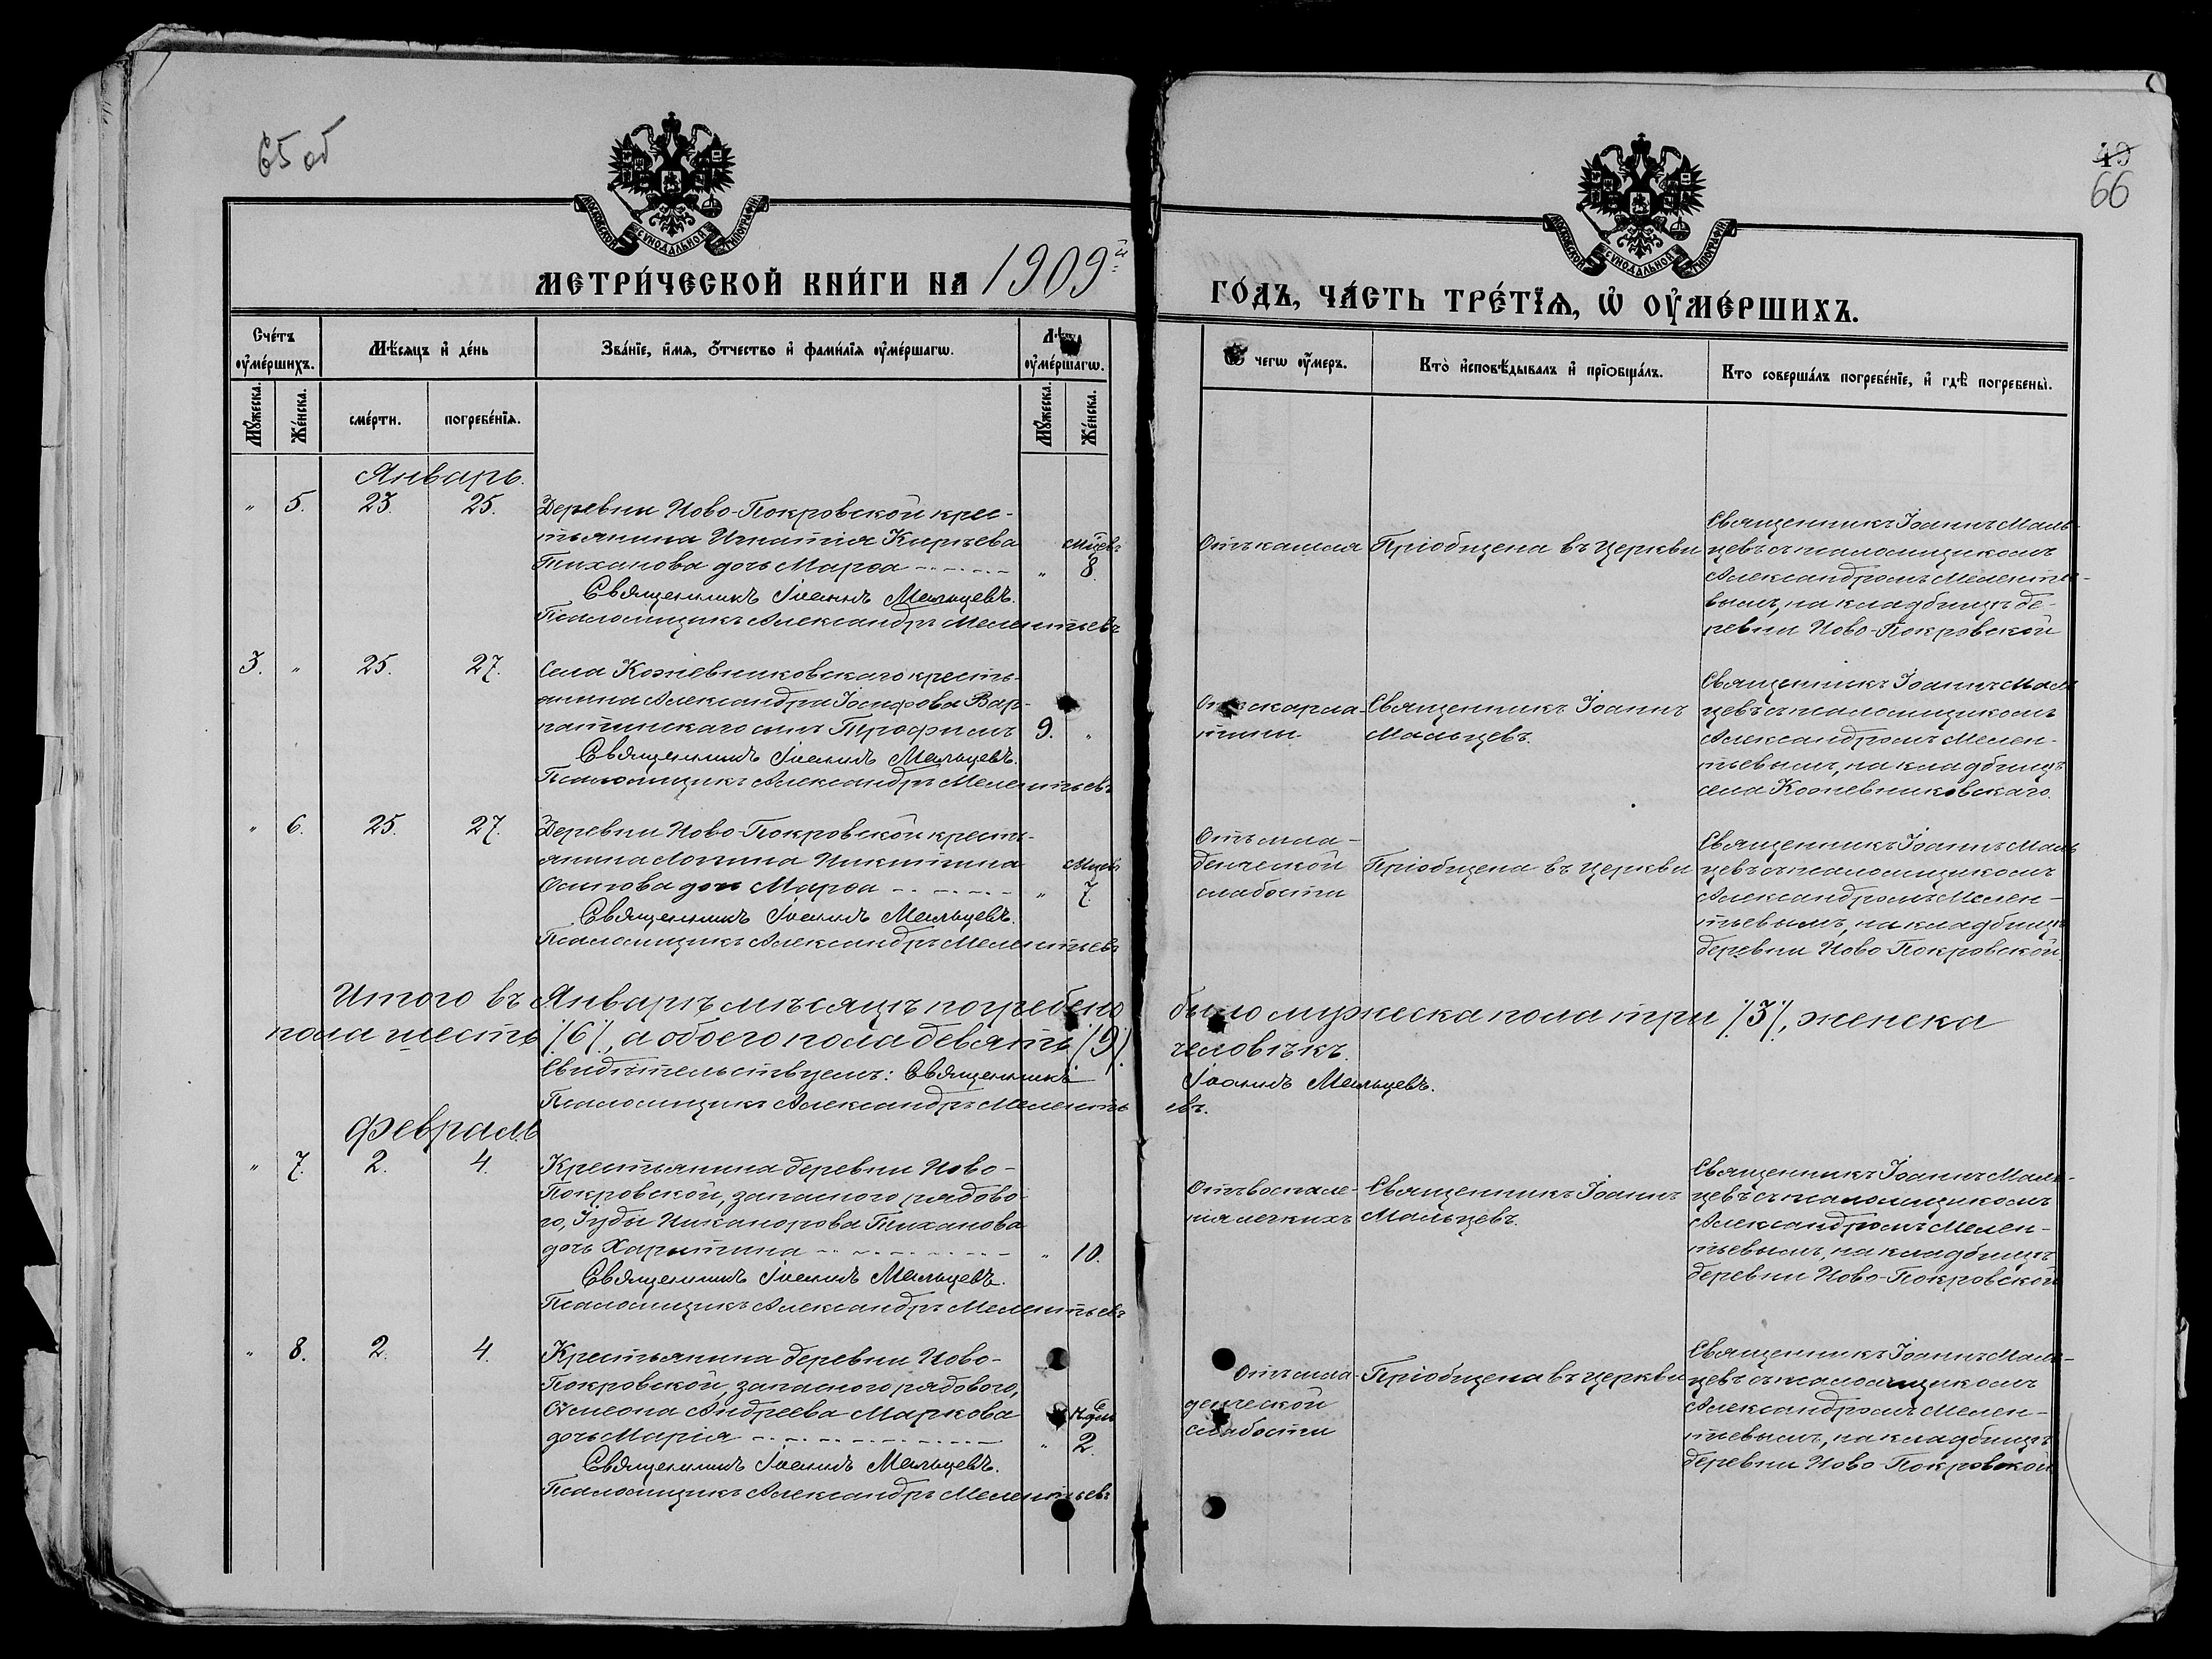 65 об
49
66
МОСКОВСКОЙ СѴНОДАЛЬНОЙ ТИПОГРАФІИ
МОСКОВСКОЙ СѴНОДАЛЬНОЙ ТИПОГРАФІИ
МЕТРИ́ЧЕСКОЙ КНИ́ГИ НА 1909й
ГО́ДЪ, ЧА́СТЬ ТРЕ́ТЇѦ, Ѡ҆ ОУ҆МЕ́РШИХЪ.
Сче́тъ
оу҆ме́ршихъ.
Мѣ́сяцъ и҆ де́нь
Зва́нїе, и҆́мя, ѻ҆́тчество и҆ фами́лїя оу҆ме́ршагѡ.
Лѣ́та
оу҆ме́ршагѡ.
Ѿ чегѡ оу҆́меръ.
Кто̀ и҆сповѣ́дывалъ и҆ прїѡбща́лъ.
Кто соверша́лъ погребе́нїе, и҆ гдѣ̀ погребены̀.
Мꙋ́жеска.
Же́нска.
сме́рти.
погребе́нїѧ.
Мꙋ́жеска.
Же́нска.
Январь.
" 5. 23. 25. Деревни Ново-Покровской крес-
тьянина Игнатія Кирѣева
Тиханова дочь Марѳа " мцевъ 8.
Священникъ Іоаннъ Мальцевъ.
Псаломщикъ Александръ Мелентьевъ
Отъ кашля
Пріобщена въ Церкви
Священникъ Іоаннъ Маль-
цевъ съ псаломщикомъ
Александромъ Мелентье-
вымъ, на кладбищѣ де-
ревни Ново-Покровской
3. " 25. 27. Села Кожевниковскаго кресть-
янина Александра Іосифова Вар-
патинскаго сынъ Трофимъ 9. "
Священникъ Іоаннъ Мальцевъ.
Псаломщикъ Александръ Мелентьевъ
Отъ скарла-
тины.
Священникъ Іоаннъ
Мальцевъ.
Священникъ Іоаннъ Маль
цевъ съ псаломщикомъ
Александромъ Мелен-
тьевымъ, на кладбищѣ
села Кожевниковскаго.
" 6. 25. 27. Деревни Ново-Покровской кресть-
янина Логгина Никитина
Осипова дочь Марѳа " мцевъ 7.
Священникъ Іоаннъ Мальцевъ.
Псаломщикъ Александръ Мелентьевъ
Отъ мла-
денческой
слабости
Пріобщена въ Церкви
Священникъ Іоаннъ Маль
цевъ съ псаломщикомъ
Александромъ Мелен-
тьевымъ, на кладбищѣ
деревни Ново Покровской.
Итого въ Январѣ мѣсяцѣ погребено было мужеска пола три /3/, женска
пола шесть /6/, а обоего пола девять /9/ человѣкъ.
Свидѣтельствуемъ: Священникъ Іоаннъ Мальцевъ.
Псаломщикъ Александръ Мелентьевъ.
Февраль
" 7. 2. 4. Крестьянина деревни Ново-
Покровской, запасного рядово-
го, Іуды Никанорова Тиханова
дочь Харитина " 10.
Священникъ Іоаннъ Мальцевъ.
Псаломщикъ Александръ Мелентьевъ
Отъ воспале-
нія легкихъ
Священникъ Іоаннъ
Мальцевъ.
Священникъ Іоаннъ Маль-
цевъ съ псаломщикомъ
Александромъ Мелен-
тьевымъ, на кладбищѣ
деревни Ново-Покровской
" 8. 2. 4. Крестьянина деревни Ново-
Покровской, запасного рядового,
Сѵмеона Андреева Маркова
дочь Марія " 2.
Священникъ Іоаннъ Мальцевъ.
Псаломщикъ Александръ Мелентьевъ
Отъ мла-
денческой
слабости
Пріобщена въ Церкви
Священникъ Іоаннъ Маль-
цевъ съ псаломщикомъ
Александромъ Мелен-
тьевымъ, на кладбищѣ
деревни Ново Покровской